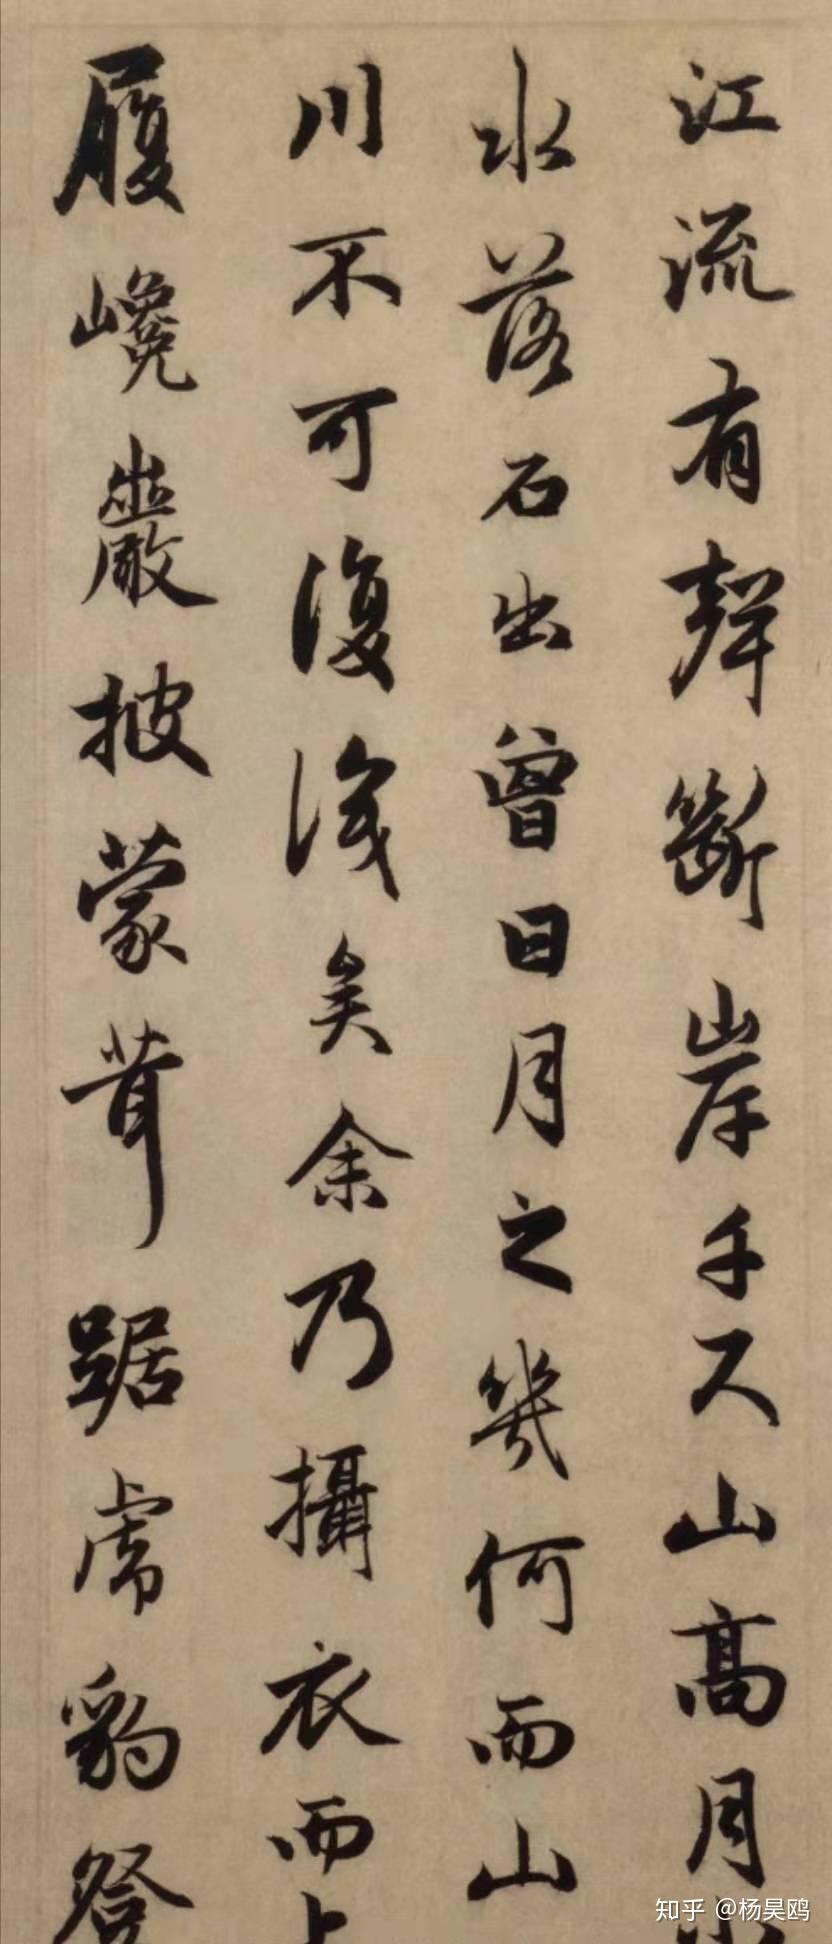 江流有聲斷岸千尺山高月小
水落石出曾日月之幾何而山
川不可復識矣余乃攝衣而上
履巉巖披蒙茸踞虎豹登
知乎 @杨昊鸥